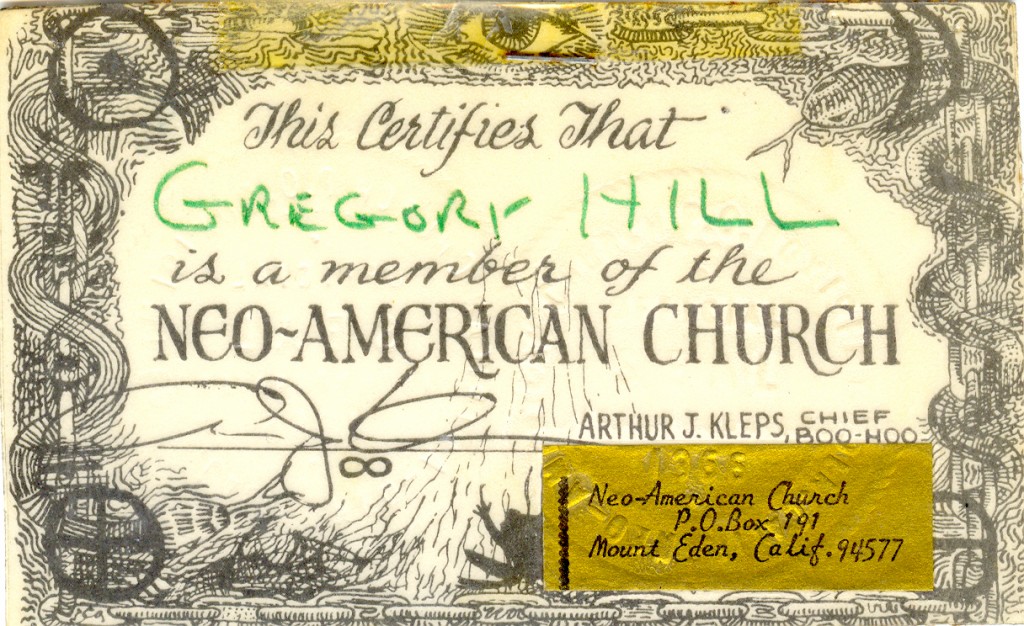 This Certifies That
GREGORY HILL
is a member of the
NEO-AMERICAN CHURCH
ARTHUR J. KLEPS, CHIEF BOO-HOO
1966
Neo-American Church
P.O.Box 191
Mount Eden, Calif. 94577